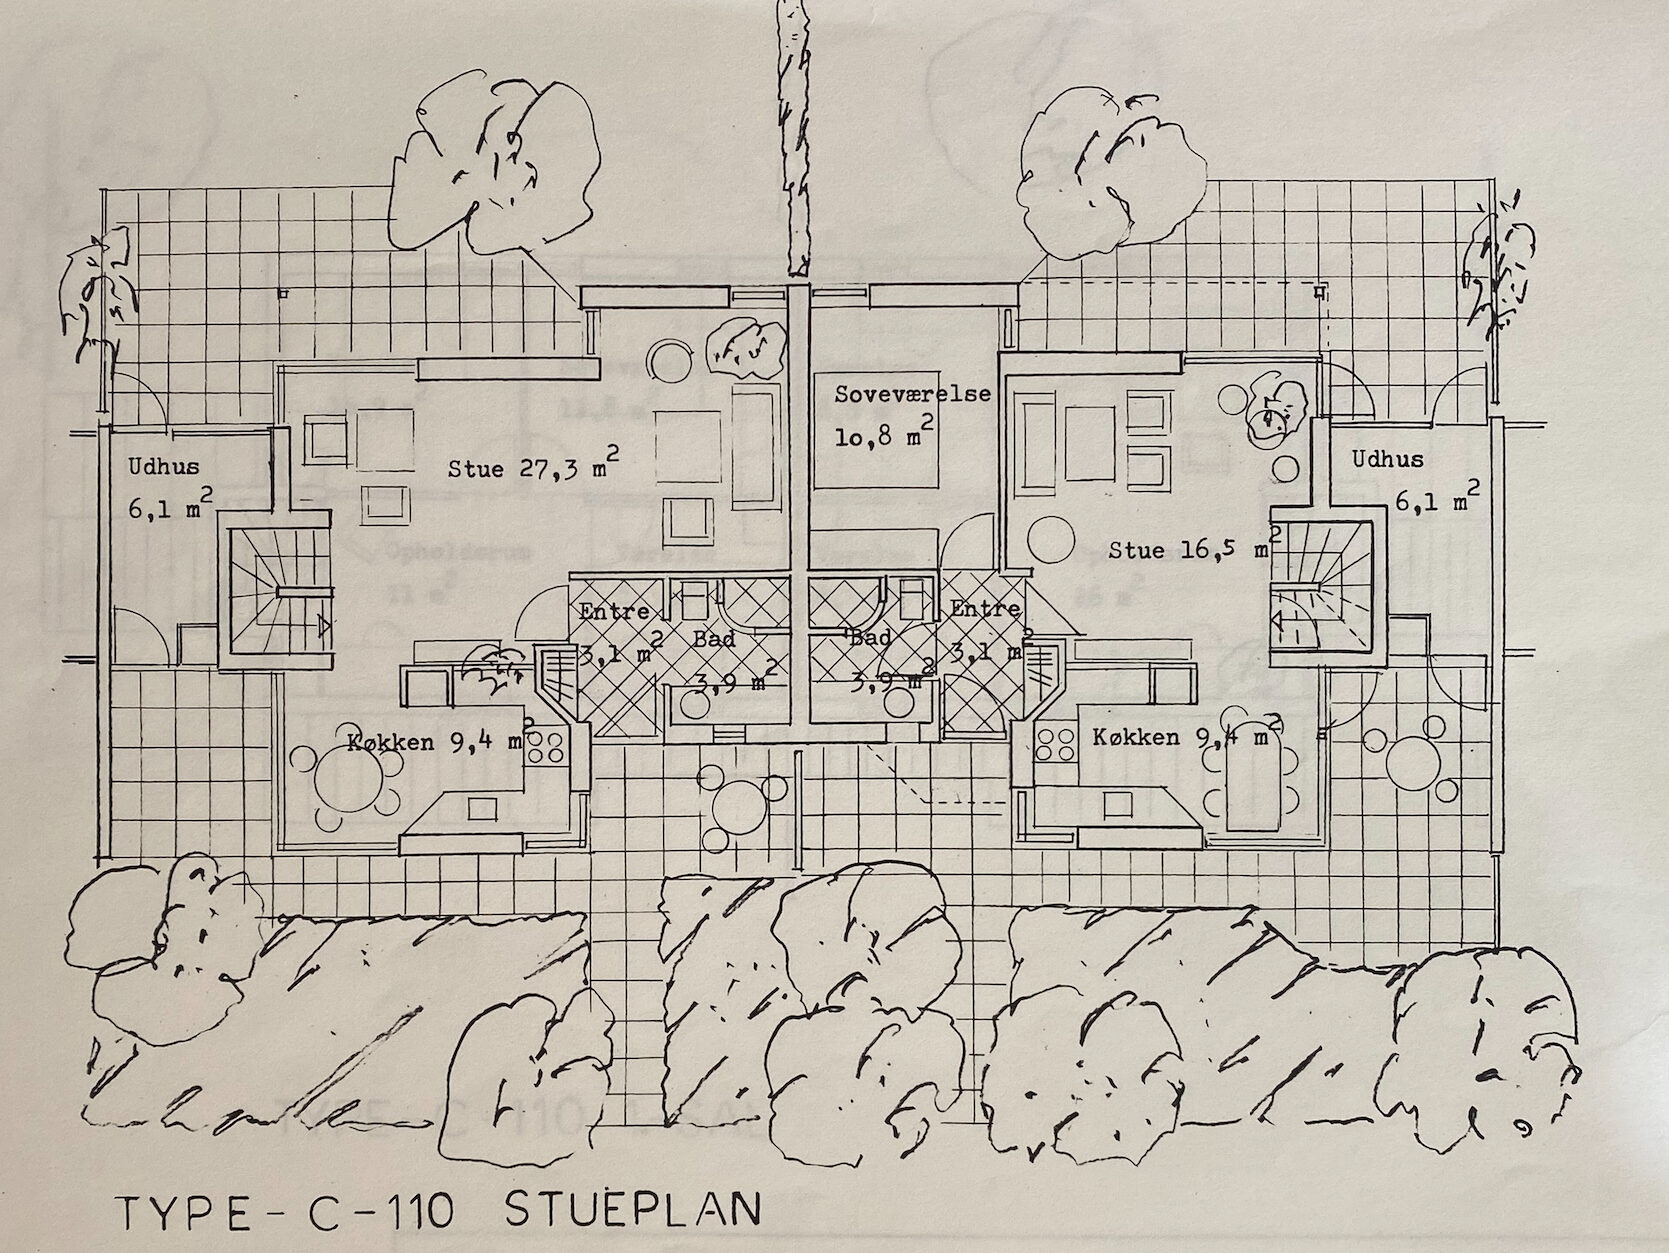 Soveværelse
10,8 m²
Stue 27,3 m²
Udhus
6,1 m²
Udhus
6,1 m²
Stue 16,5 m²
Entre
3,1 m²
Bad
3,9 m²
Bad
3,9 m²
Entre
3,1 m²
Køkken 9,4 m²
Køkken 9,4 m²
TYPE - C - 110 STUEPLAN